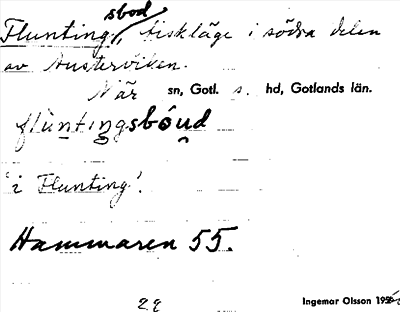 sbod
Flunting, fiskläge i södra delen
av Austerviken.
När sn, Gotl. s. hd, Gotlands län.
fluntingsbóud
'i Flunting'.
Hammaren 55.
29
Ingemar Olsson 195